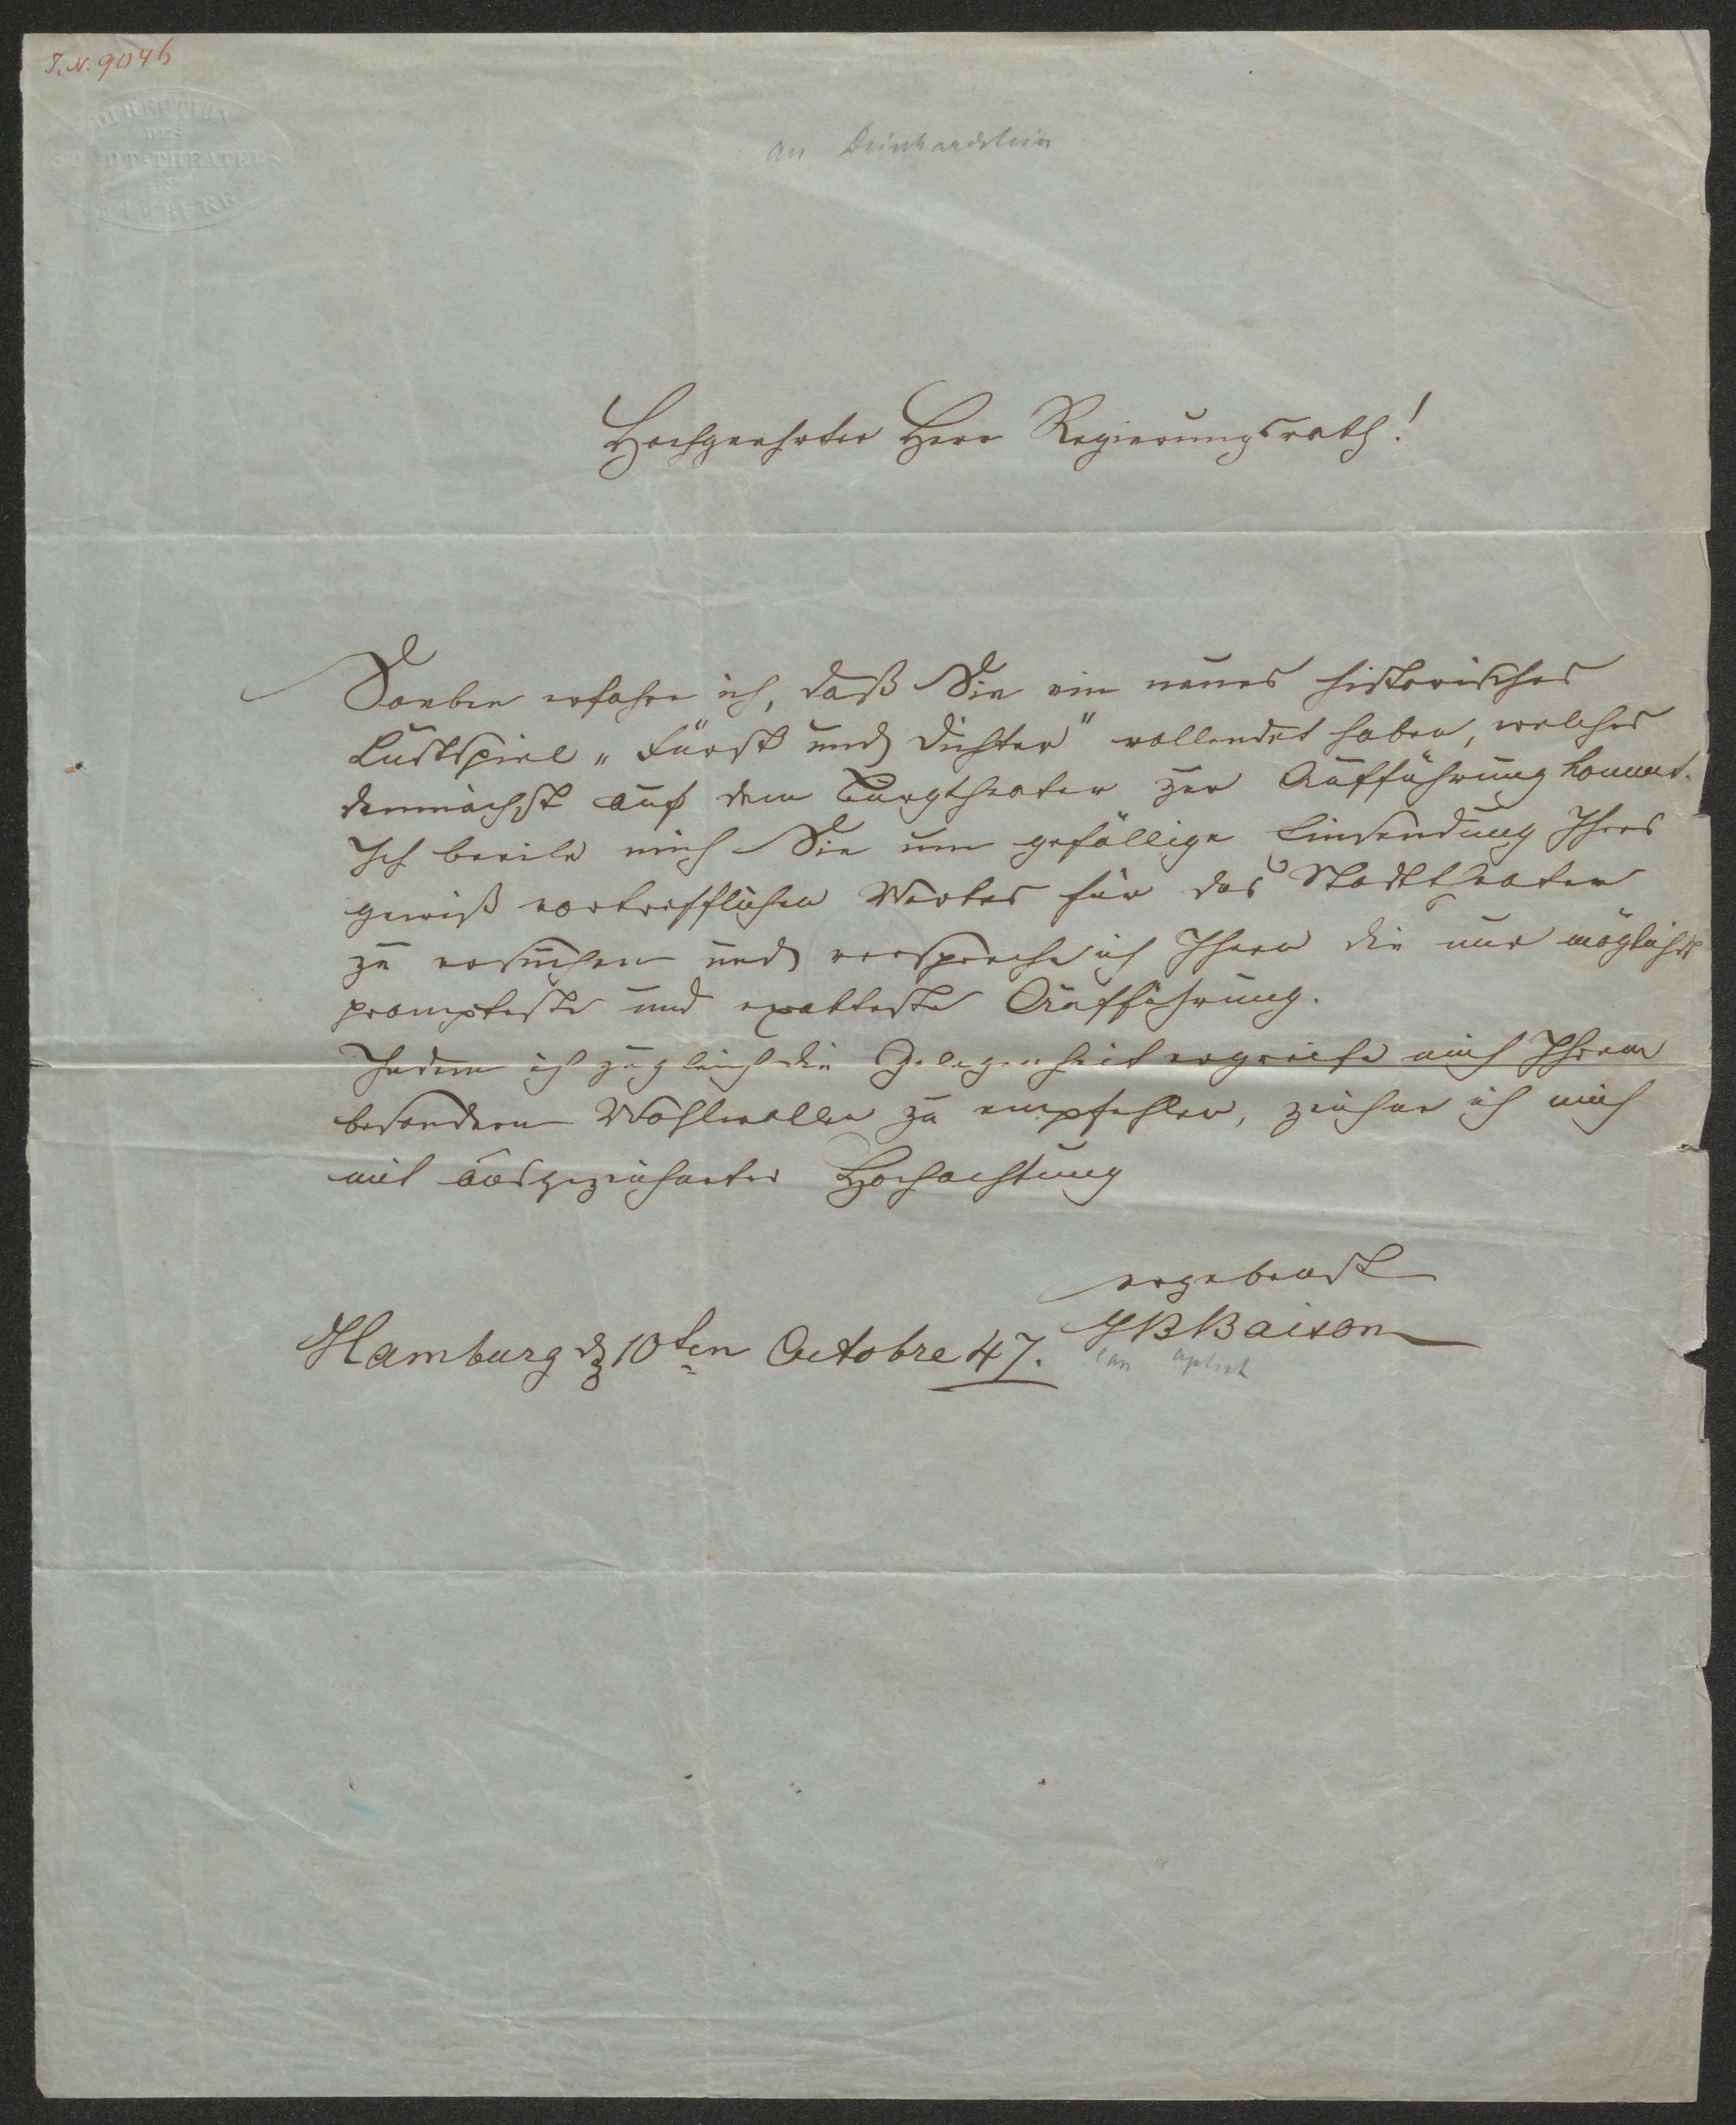 I.N. 9046
DIRECTION
DES
STADT-THEATERS
IN
HAMBURG
an Deinhardstein
Hochgeehrter Herr Regierungsrath!
Soeben erfahre ich, daß Sie ein neues historisches
Lustspiel „Fürst und Dichter" vollendet haben, welches
demnächst auf dem Burgtheater zur Aufführung kommt.
Ich beeile mich Sie um gefällige Einsendung Ihres
gewiß vortrefflichen Werkes für das Stadttheater
zu ersuchen und verspreche ich Ihnen die nur möglichst
prompteste und exakteste Aufführung.
Indem ich zugleich die Gelegenheit ergreife mich Ihrem
besondern Wohlwollen zu empfehlen, zeichne ich mich
mit ausgezeichneter Hochachtung
ergebenst
JBBaison
Hamburg d 10ten Octobre 47.